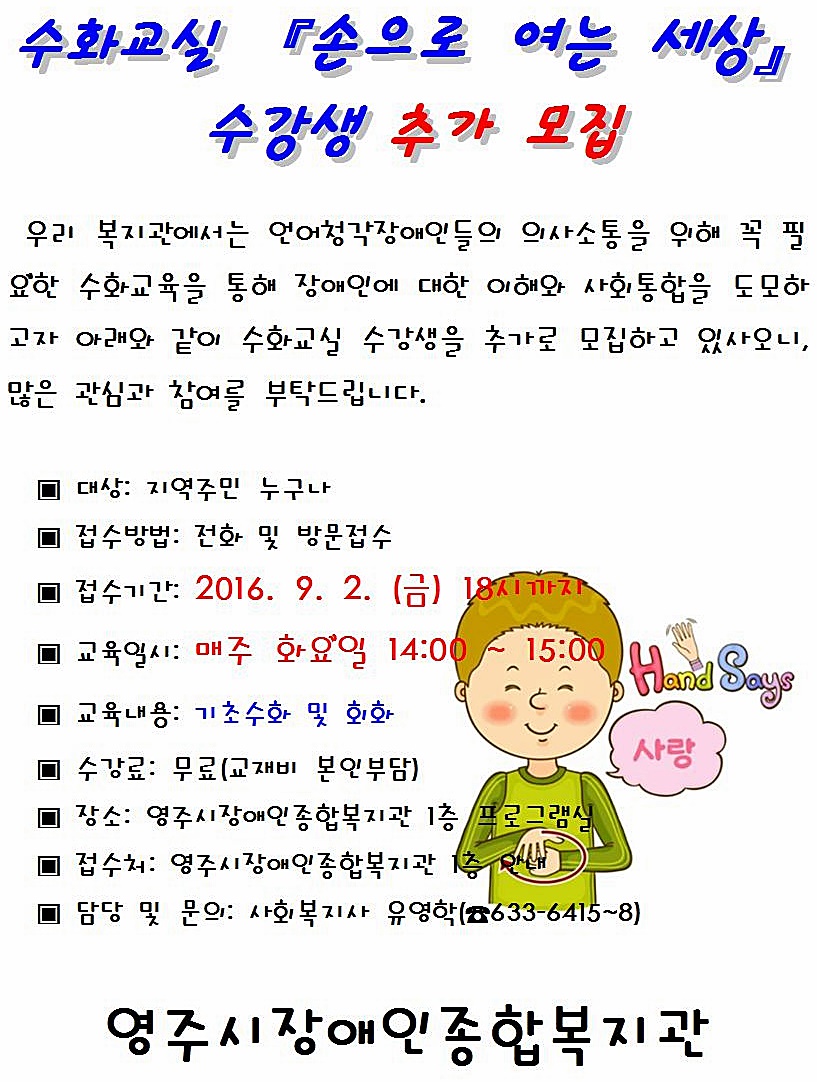 수화교실 『손으로 여는 세상』
수강생 추가 모집
우리 복지관에서는 언어청각장애인들의 의사소통을 위해 꼭 필
요한 수화교육을 통해 장애인에 대한 이해와 사회통합을 도모하
고자 아래와 같이 수화교실 수강생을 추가로 모집하고 있사오니,
많은 관심과 참여를 부탁드립니다.
▣ 대상: 지역주민 누구나
▣ 접수방법: 전화 및 방문접수
▣ 접수기간: 2016. 9. 2. (금) 18시까지
▣ 교육일시: 매주 화요일 14:00 ~ 15:00
Hand Says
▣ 교육내용: 기초수화 및 회화
사랑
▣ 수강료: 무료(교재비 본인부담)
▣ 장소: 영주시장애인종합복지관 1층 프로그램실
▣ 접수처: 영주시장애인종합복지관 1층 안내
▣ 담당 및 문의: 사회복지사 유영학(☎633-6415~8)
영주시장애인종합복지관